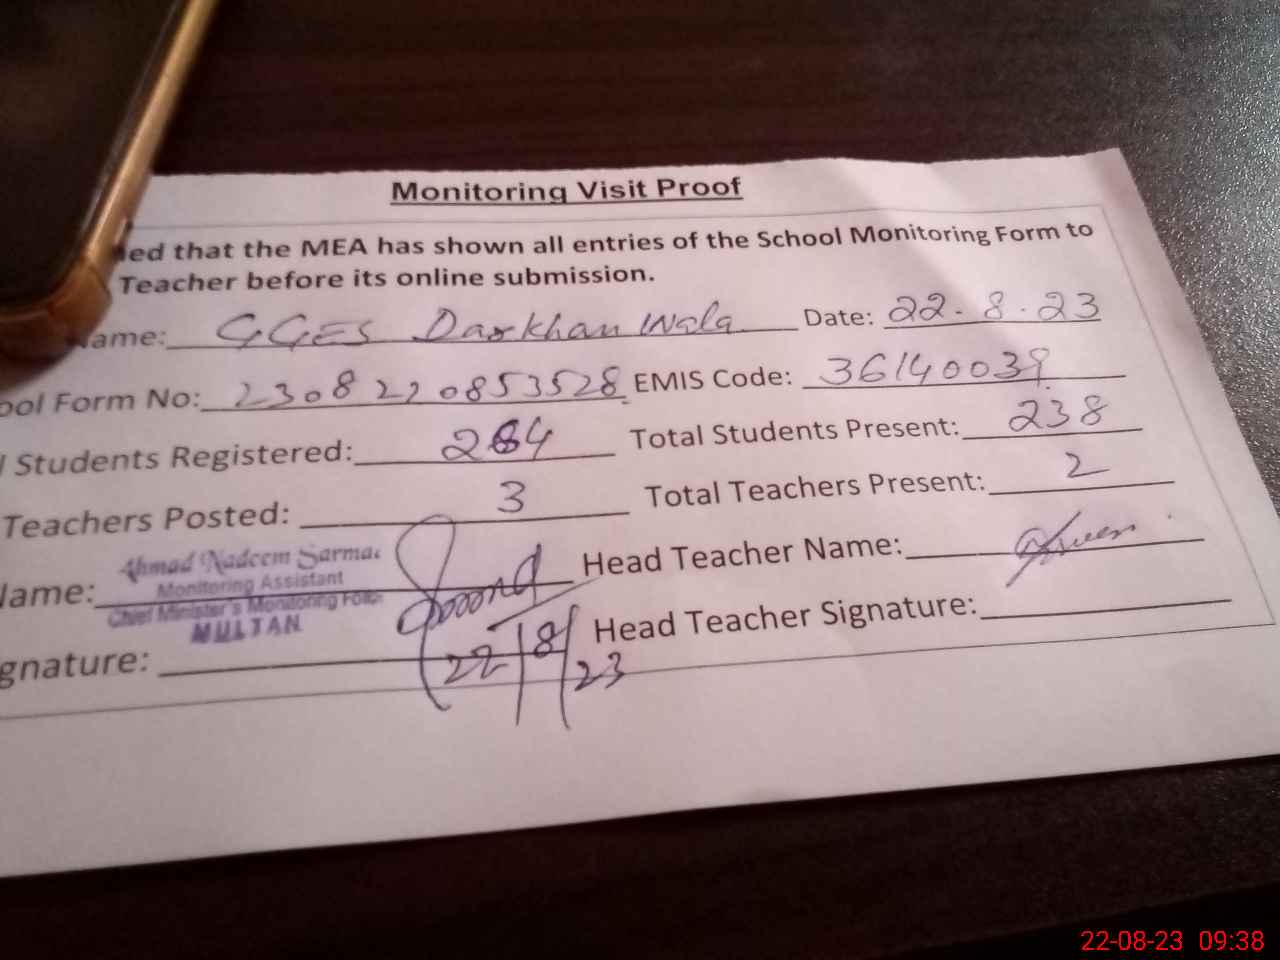 Monitoring Visit Proof
ed that the MEA has shown all entries of the School Monitoring Form to
Teacher before its online submission.
ame: GGES Darkhan Wala Date: 22.8.23
ool Form No: 2308220853528 EMIS Code: 36140039
l Students Registered: 264 Total Students Present: 238
Teachers Posted: 3 Total Teachers Present: 2
Ahmad Nadeem Sarmad
Monitoring Assistant
Name: Head Teacher Name:
Chief Minister's Monitoring Force
MULTAN
gnature: 22/8/23 Head Teacher Signature:
22-08-23 09:38